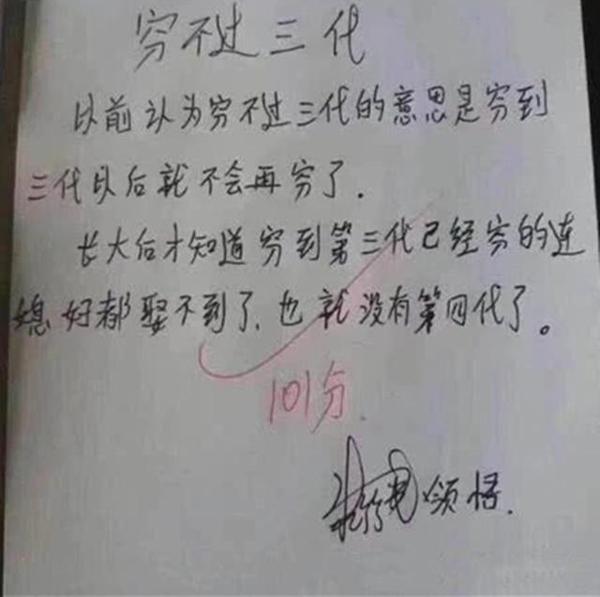 穷不过三代
以前认为穷不过三代的意思是穷到
三代以后就不会再穷了.
长大后才知道穷到第三代已经穷的连
媳好都娶不到了,也就没有第四代了。
101分.
领悟.